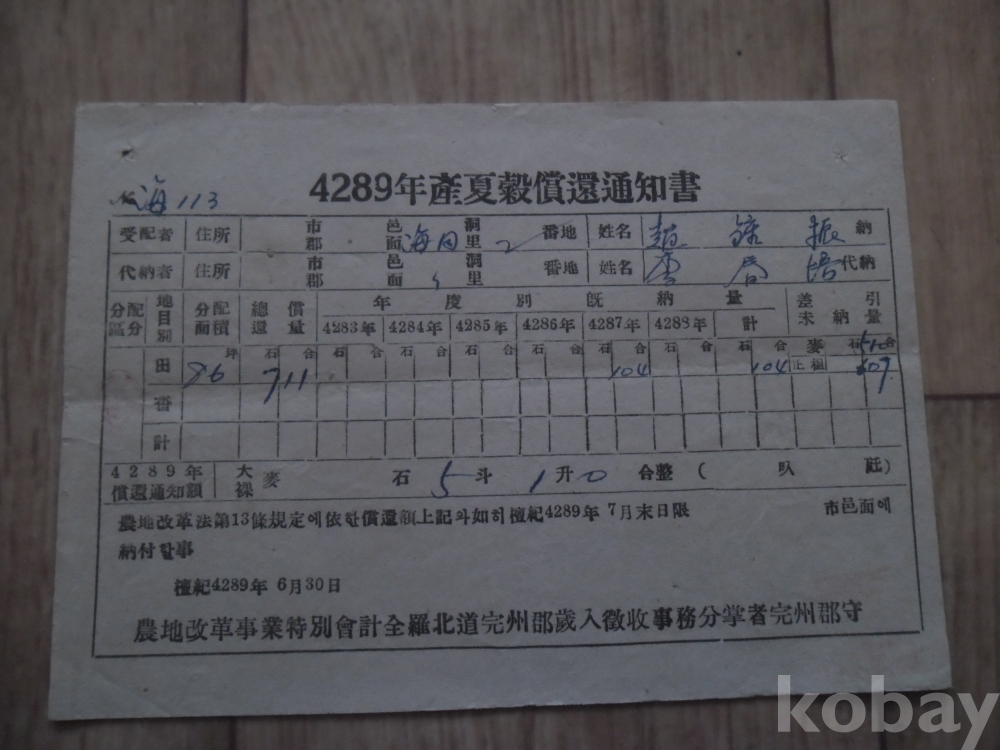 4289年產夏穀償還通知書
海113
受配者 住所 市郡 邑面 海月 洞里 2 番地 姓名 趙 振 納
代納者 住所 市郡 邑面 〃 洞里 番地 姓名 李 代納
分配區分 地目別 分配面積 總償還量 年度別既納量 差引未納量
4283年 4284年 4285年 4286年 4287年 4288年 計
坪 石 合 石 合 石 合 石 合 石 合 石 合 石 合 石 合 麥 石 合 510
田 96 711 104 104 正租 607
畓
計
4289年償還通知額 大裸麥 石 5 斗 1 升 0 合整 ( 叺 瓩)
農地改革法第13條規定에依한償還額上記와如히檀紀4289年 7月末日限 市邑面에
納付할事
檀紀4289年 6月30日
農地改革事業特別會計全羅北道完州郡歲入徵收事務分掌者完州郡守
kobay